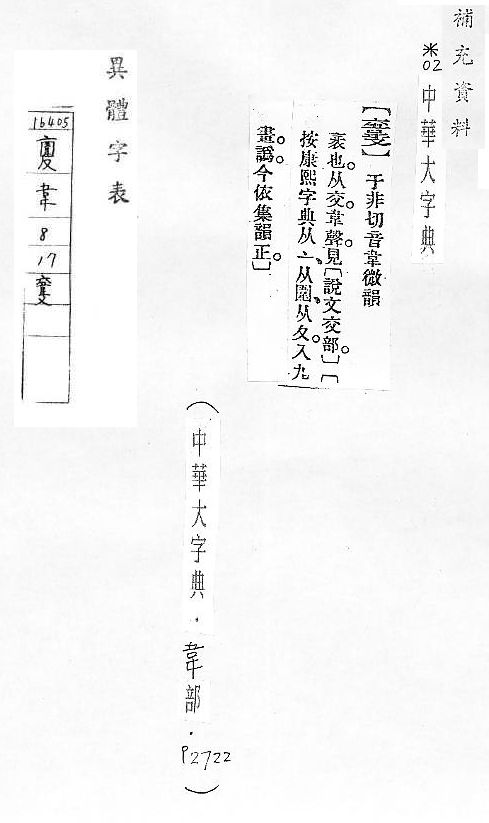 補充資料
※02 中華大字典
【】 于非切音韋微韻
衺也。从交。韋聲。見[說文交部]。[
按康熙字典从亠、从、从夂。入九
畫。譌。今依集韻正。]
(中華大字典．韋部．P2722)
異體字表
16405
韋
8
17